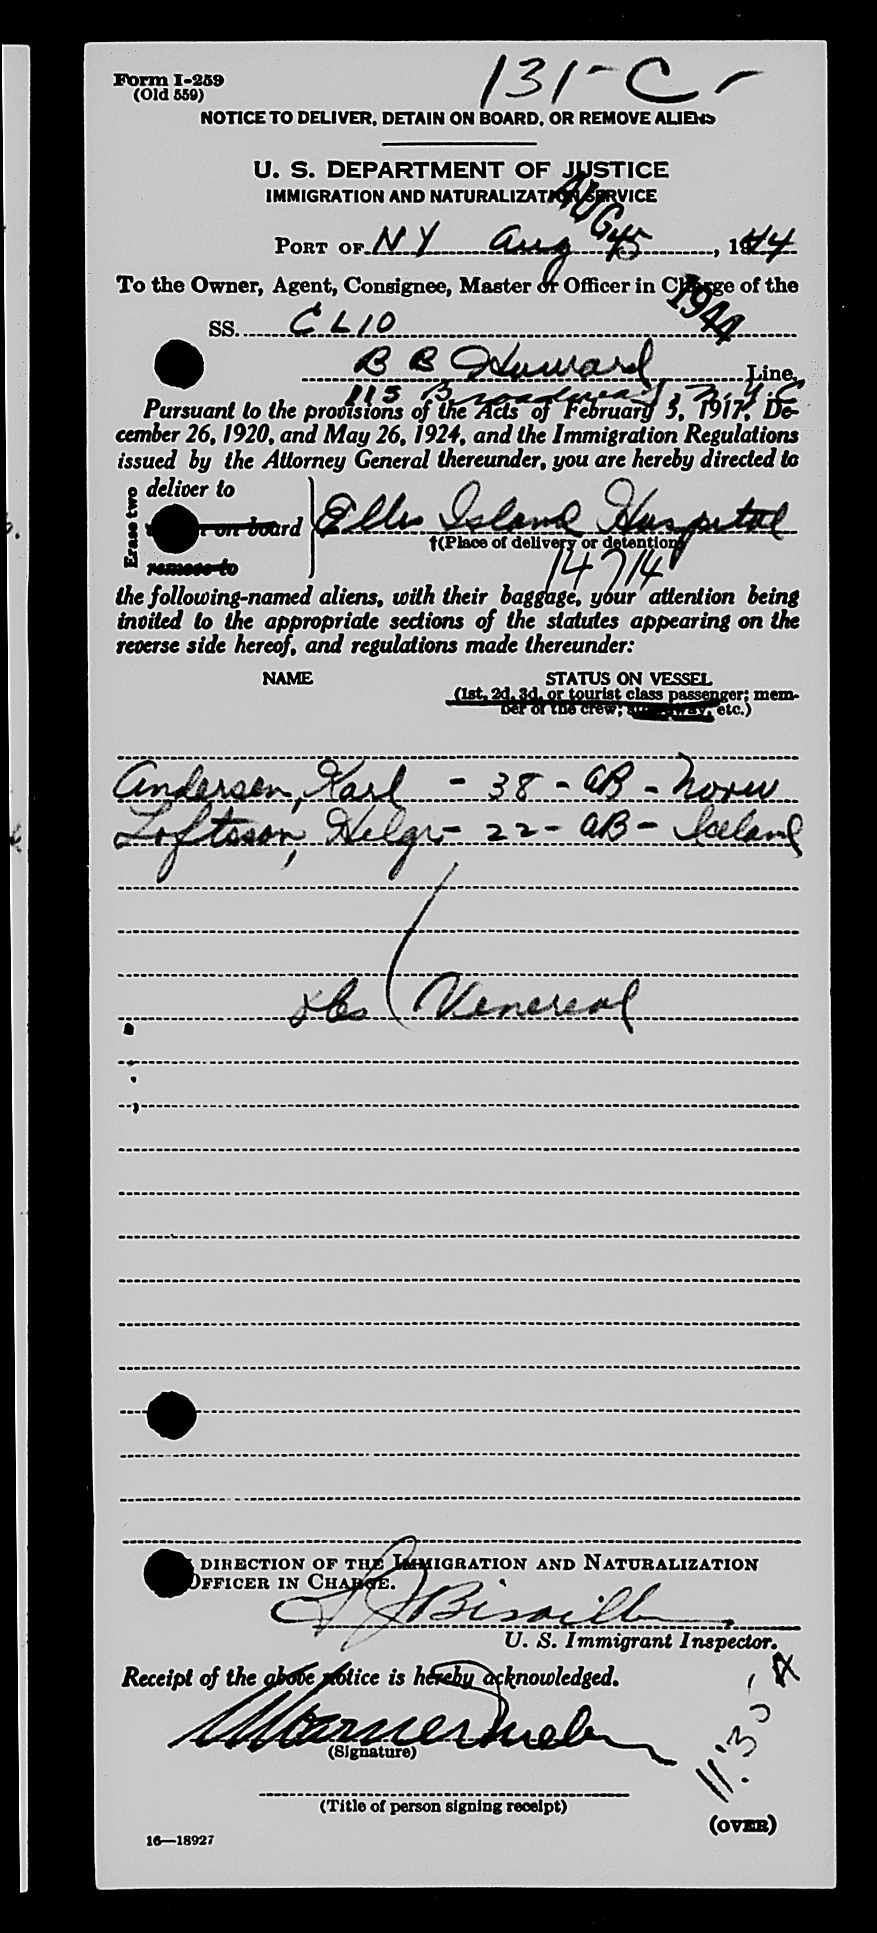 Form I-259
(Old 559)
131-C
NOTICE TO DELIVER, DETAIN ON BOARD, OR REMOVE ALIENS
U. S. DEPARTMENT OF JUSTICE
IMMIGRATION AND NATURALIZATION SERVICE
AUG
PORT OF NY Aug 5, 1944
To the Owner, Agent, Consignee, Master or Officer in Charge of the
1944
SS. CLIO
B B Howard Line,
115 Broadway, N.Y.C
Pursuant to the provisions of the Acts of February 5, 1917, De-
cember 26, 1920, and May 26, 1924, and the Immigration Regulations
issued by the Attorney General thereunder, you are hereby directed to
Erase two
deliver to
on board
remove to
Ellis Island Hospital
†(Place of delivery or detention)
14714
the following-named aliens, with their baggage, your attention being
invited to the appropriate sections of the statutes appearing on the
reverse side hereof, and regulations made thereunder:
NAME STATUS ON VESSEL
(1st, 2d, 3d, or tourist class passenger; mem-
ber of the crew; stowaway, etc.)
Andersen, Karl - 38 - AB - Norw
Loftsson, Helgi - 22 - AB - Iceland
Venereal
DIRECTION OF THE IMMIGRATION AND NATURALIZATION
OFFICER IN CHARGE.
U. S. Immigrant Inspector.
Receipt of the above notice is hereby acknowledged.
(Signature)
11:35 A
(Title of person signing receipt)
(OVER)
16—18927